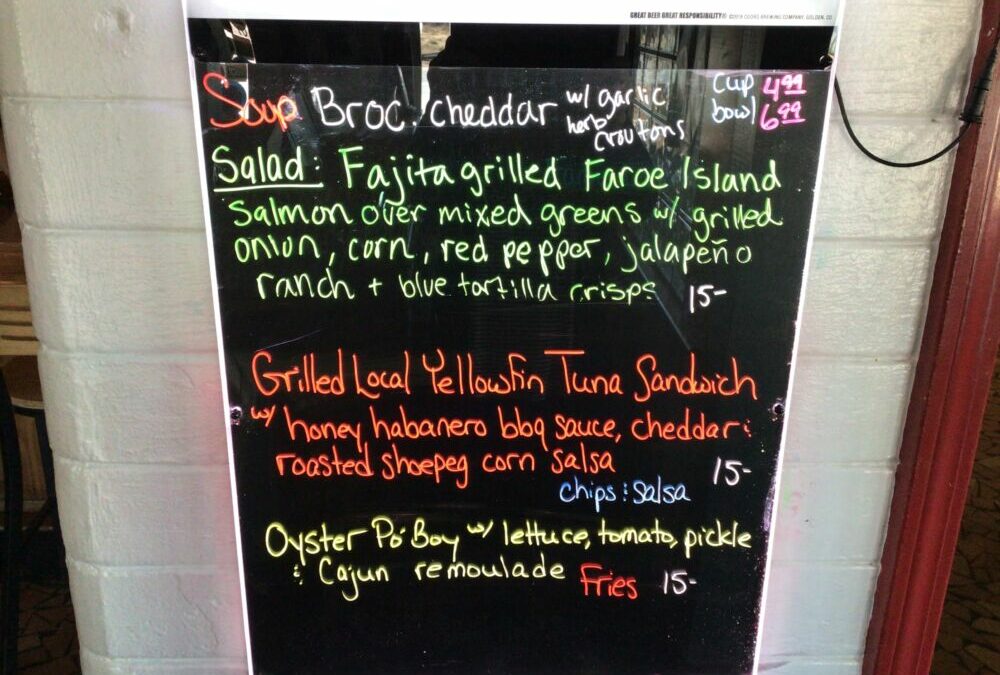 GREAT BEER GREAT RESPONSIBILITY® ©2018 COORS BREWING COMPANY, GOLDEN, CO
Soup Broc. cheddar w/ garlic herb croutons cup 4.99 bowl 6.99
Salad: Fajita grilled Faroe Island
Salmon over mixed greens w/ grilled
onion, corn, red pepper, jalapeño
ranch + blue tortilla crisps 15-
Grilled Local Yellowfin Tuna Sandwich
w/ honey habanero bbq sauce, cheddar &
roasted shoepeg corn salsa 15-
chips & salsa
Oyster Po' Boy w/ lettuce, tomato, pickle
& Cajun remoulade Fries 15-